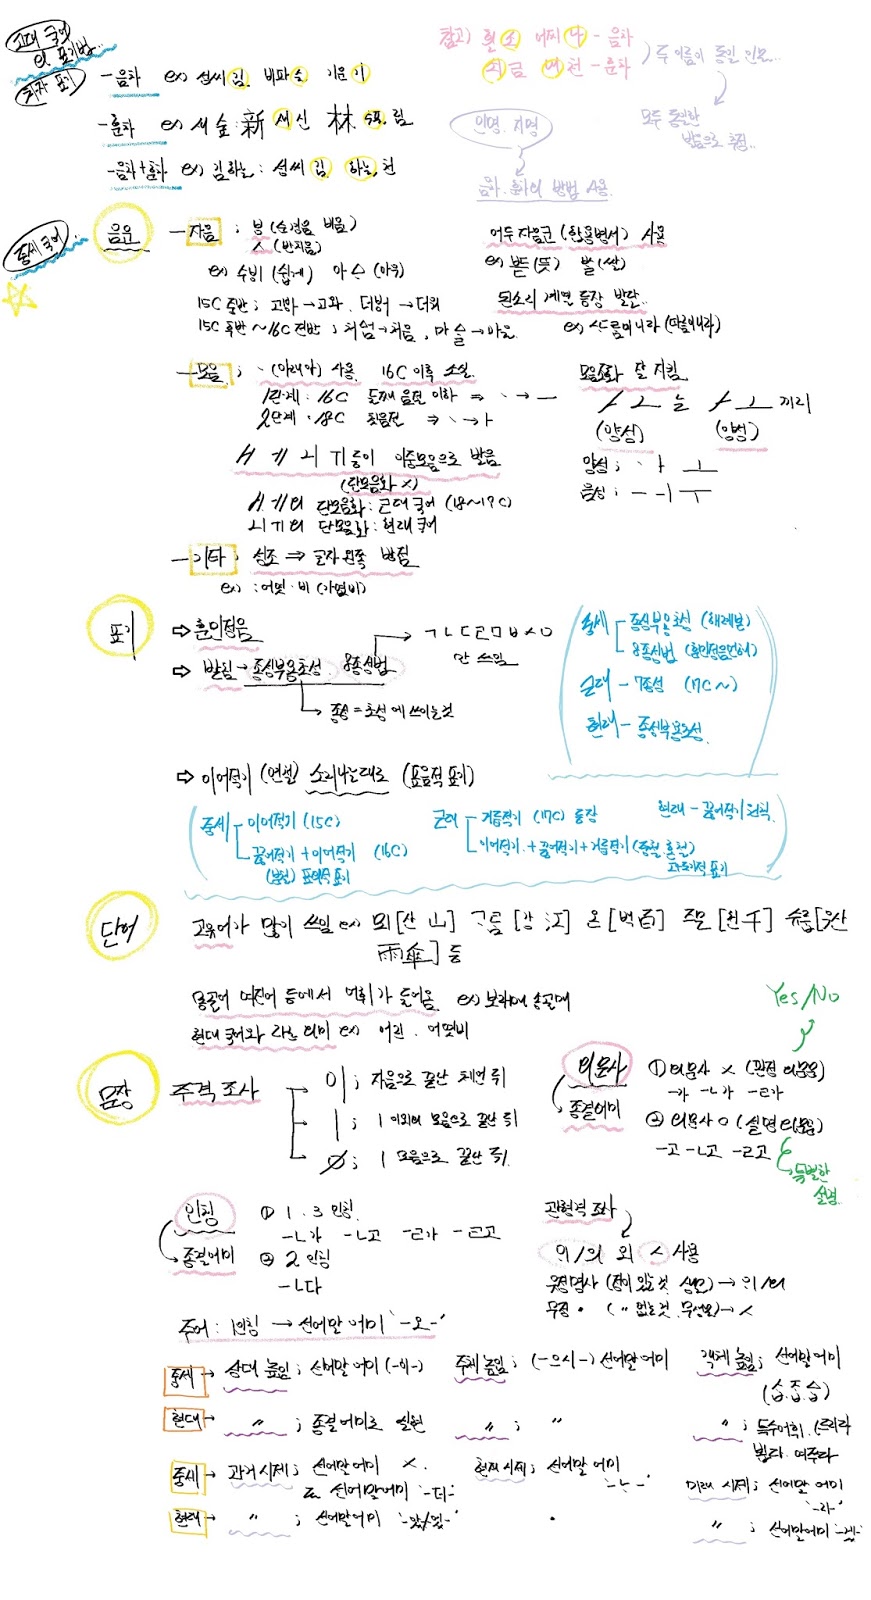 고대 국어의 표기법..
한자 표기
- 음차 ex) 성씨 김, 비파 슬 기운 기
- 훈차 ex) 새 숲 : 新 새 신 林 수풀 림
- 음차+훈차 ex) 김하늘 : 성씨 김 하늘 천
참고) 흴 소 어찌 나 - 음차
금 천 - 훈차
) 주 이름이 동일 인물..
모두 동일한 발음으로 추정..
인명. 지명
음차. 훈차의 방법 사용.
중세국어
음운
- 자음 ; ㅸ (순경음 비읍)
ㅿ (반치음)
ex) 수ᄫᅵ (쉽게) 아ᅀᆞ (아우)
15C 중반 ; 고ᄫᅡ → 고와. 더ᄫᅥ → 더워
15C 후반 ~ 16C 전반 ; 처ᅀᅥᆷ → 처음, 마ᅀᆞᆯ → 마을
어두자음군 (합용병서) 사용
ex) ᄠᅳᆮ (뜻) ᄡᆞᆯ (쌀)
된소리 계열 등장 발달..
- 모음 ; ㆍ (아래아) 사용 16C 이후 소실.
1단계 : 16C 둘째 음절 이하 ⇒ ㆍ → ㅡ
2단계 : 18C 첫음절 ⇒ ㆍ → ㅏ
ㅐ ㅔ ㅚ ㅟ 등이 이중모음으로 발음
(단모음화 X)
ㅐ. ㅔ의 단모음화 : 근대 국어 (18~19C)
ㅚ ㅟ의 단모음화 : 현대 국어
모음조화 잘 지킴
ㅏㅗ 는 ㅏㅗ 끼리
(양성) (양성)
양성 ; ㆍ ㅏ ㅗ
음성 ; ㅡ ㅓ ㅜ
- 기타 ; 성조 ⇒ 글자 왼쪽 방점
ex) : 어엿·비 (가엾비)
표기
⇨ 훈민정음
⇨ 받침 → 종성부용초성 8종성법 → ㄱㄴㄷㄹㅁㅂㅅㆁ
만 쓰임
→ 종성 = 초성에 쓰이는 것
중세 - 종성부용초성 (해례본)
- 8종성법 (훈민정음언해)
근대 - 7종성 (17C~)
현대 - 종성부용초성
⇨ 이어적기 (연철) 소리나는대로 (표음적 표기)
중세 - 이어적기 (15C)
- 끊어적기 + 이어적기 (16C)
(분철) 표의적 표기
근대 - 거듭적기 (17C) 등장
- 이어적기. + 끊어적기 + 거듭적기 (중철. 혼철)
과도기적 표기
현대 - 끊어적기 원칙.
단어
고유어가 많이 쓰임 ex) 뫼 [산 山] ᄀᆞᄅᆞᆷ [강 江] 온 [백 百] 즈믄 [천 千] 슈룹 [우산
雨傘] 등
몽골어 여진어 등에서 어휘가 들어옴 ex) 보라매 송골매
현대 국어와 다른 의미 ex) 어린. 어엿비
문장
주격 조사
이 ; 자음으로 끝난 체언 뒤
ㅣ ; ㅣ 이외의 모음으로 끝난 뒤
Ø ; ㅣ 모음으로 끝난 뒤.
의문사
종결어미
① 의문사 X (판정 의문문) Yes/No
-가 -ㄴ가 -ㄹ가
② 의문사 O (설명 의문문)
-고 -ㄴ고 -ㄹ고
특별한 설명
인칭
종결어미
① 1. 3 인칭
-ㄴ가 -ㄴ고 -ㄹ가 -ㄹ고
② 2 인칭
-ㄴ다
관형격 조사
ᄋᆡ/의 외 ㅅ 사용
유정명사 (정이 있는 것 생물) → ᄋᆡ/의
무정 〃 ( 〃 없는 것. 무생물) → ㅅ
주어 : 1인칭 → 선어말 어미 '-오-'
중세 → 상대 높임 ; 선어말 어미 (-이-)
주체 높임 ; (-으시-) 선어말어미
객체 높임 ; 선어말 어미
(ᄉᆞᆸ. ᄌᆞᆸ. ᄉᆞᆸ)
현대 → 〃 ; 종결어미로 실현
〃 ; 〃
〃 ; 특수어휘. (드리다
뵙다. 여쭈다
중세 → 과거 시제 ; 선어말어미 X.
or 선어말어미 '-더-'
현재 시제 ; 선어말 어미
'-ᄂᆞ-'
미래 시제 ; 선어말 어미
'-리-'
현대 → 〃 ; 선어말어미 '-았/었-'
〃 ; 선어말어미 '-겠-'